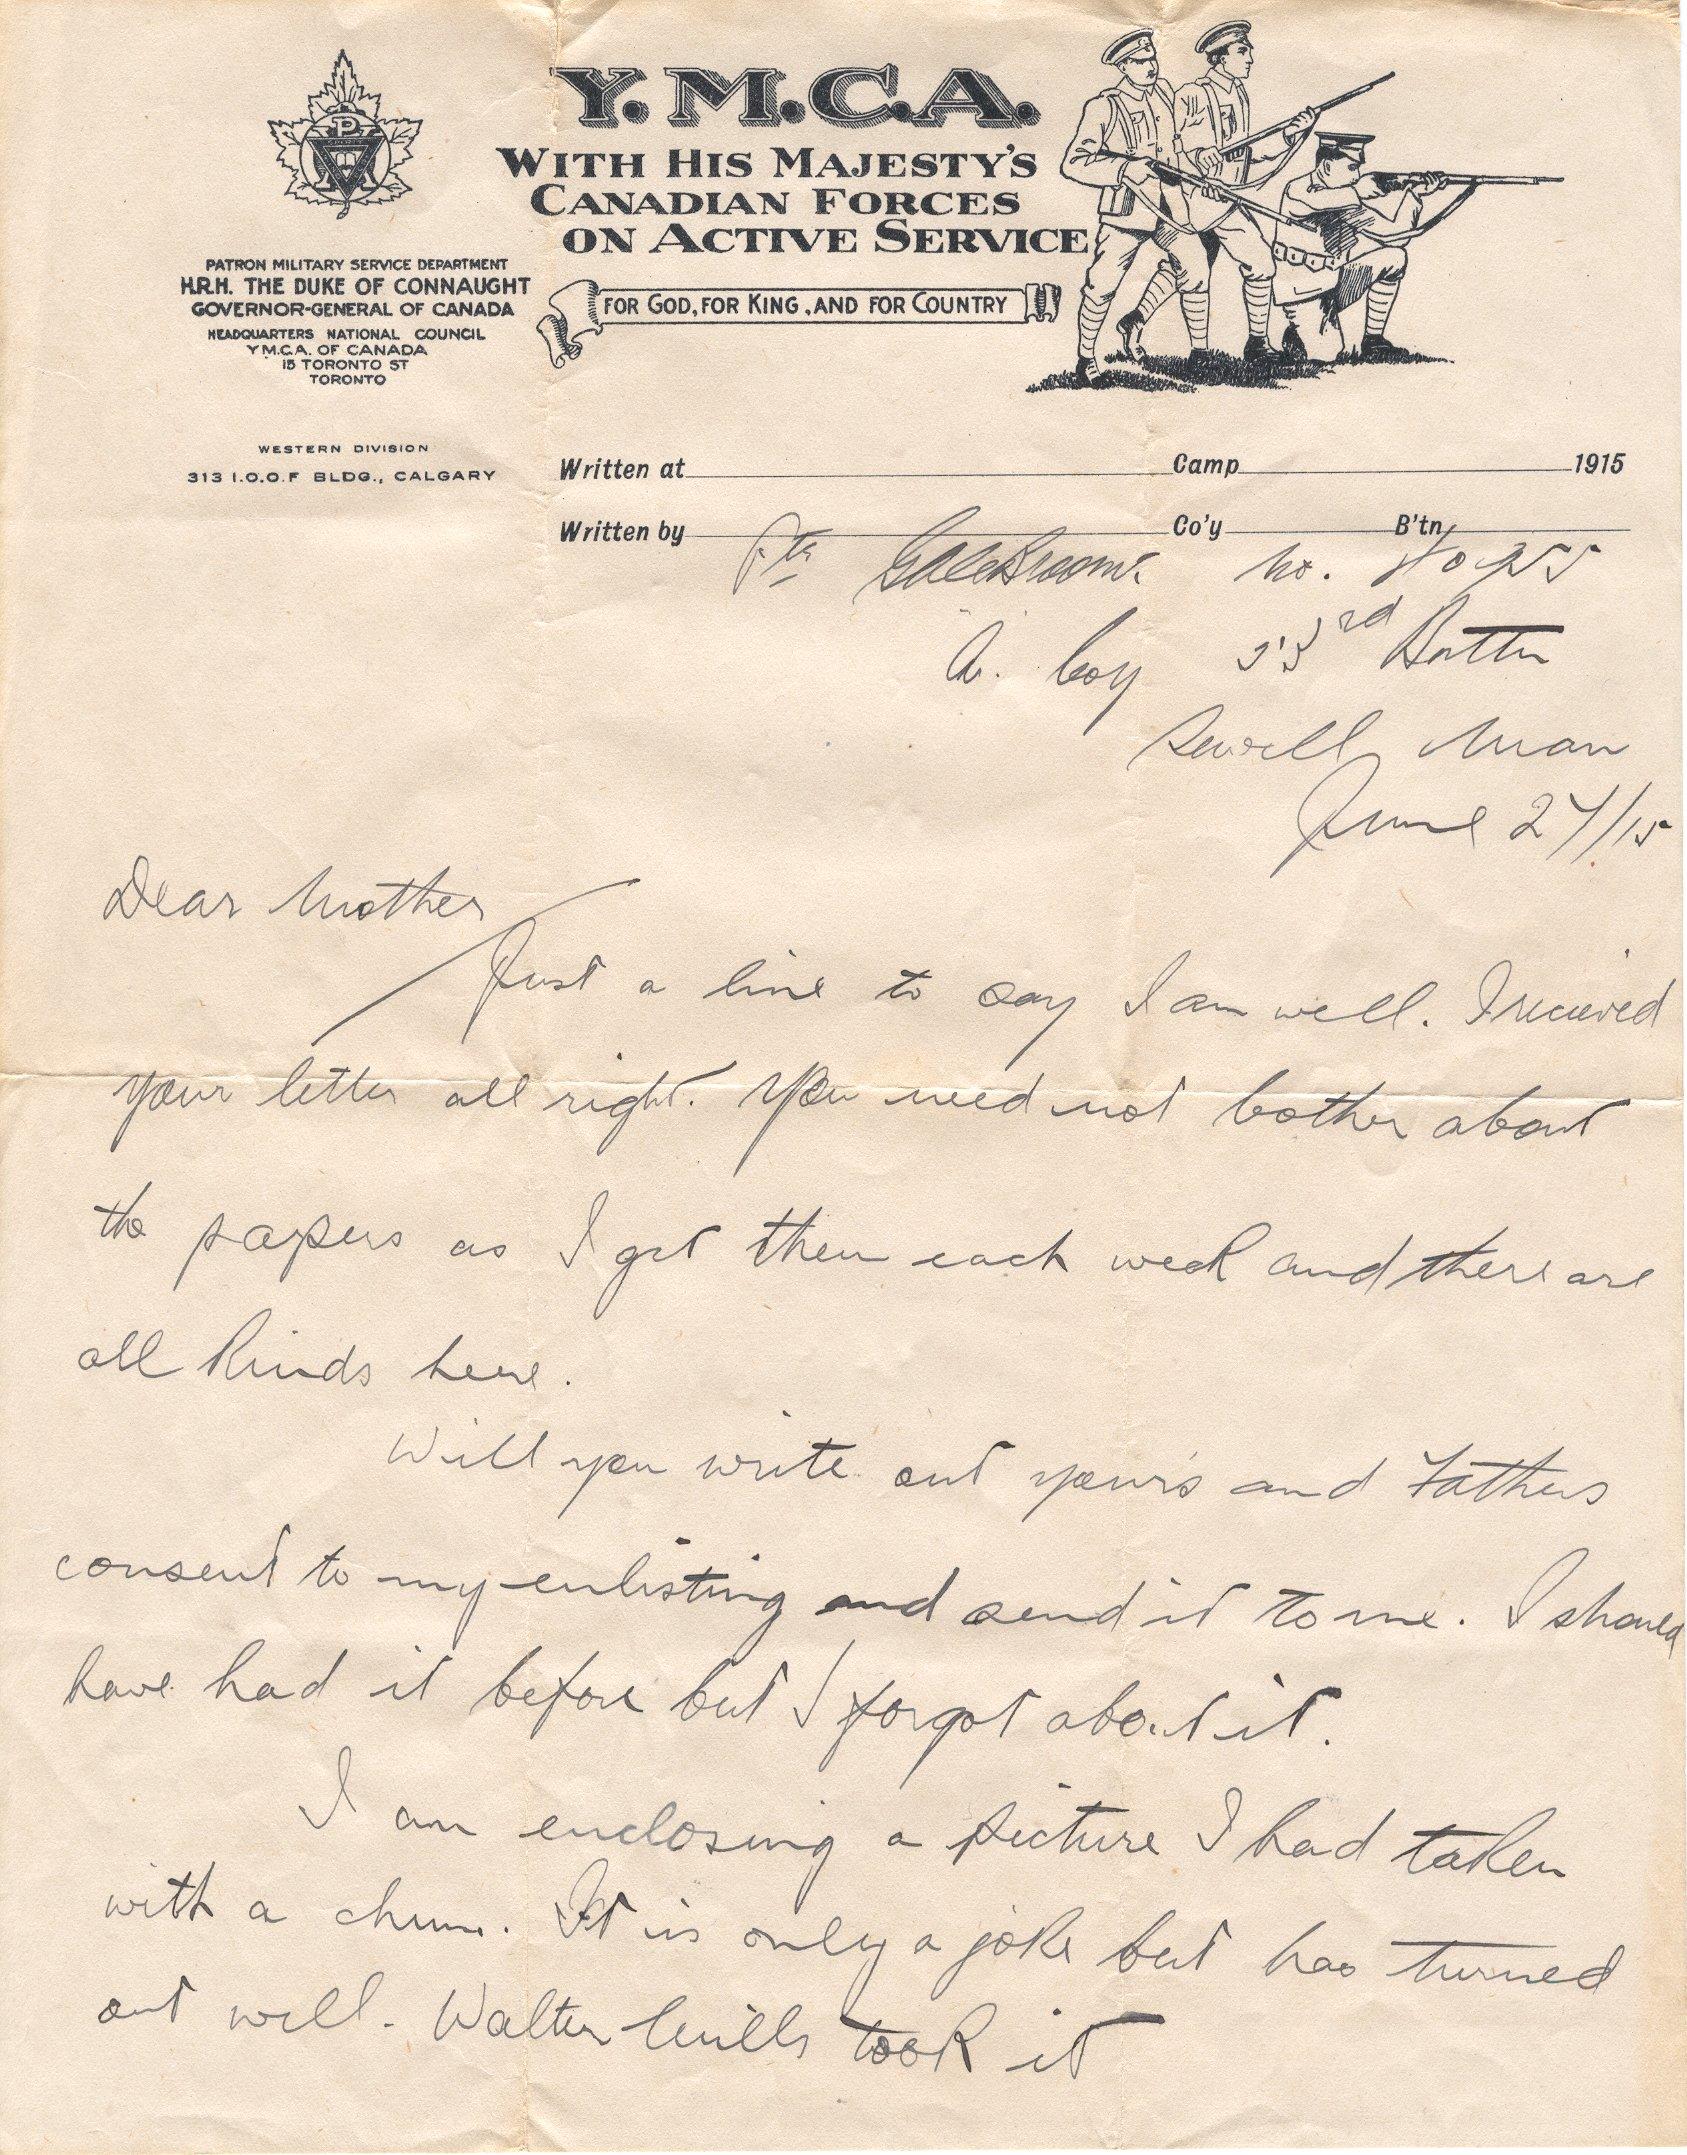 Y.M.C.A.
WITH HIS MAJESTY'S
CANADIAN FORCES
ON ACTIVE SERVICE
FOR GOD, FOR KING, AND FOR COUNTRY
PATRON MILITARY SERVICE DEPARTMENT
H.R.H. THE DUKE OF CONNAUGHT
GOVERNOR-GENERAL OF CANADA
HEADQUARTERS NATIONAL COUNCIL
Y.M.C.A. OF CANADA
15 TORONTO ST
TORONTO
WESTERN DIVISION
313 I.O.O.F BLDG., CALGARY
Written at Camp 1915
Written by Co'y B'tn
Pte No.
A. Coy 53rd Battn
Sewell Man
June 27/15
Dear Mother
Just a line to say I am well. I recieved
your letter all right. You need not bother about
the papers as I get them each week and there are
all kinds here.
Will you write out your's and Fathers
consent to my enlisting and send it to me. I should
have had it before but I forgot about it.
I am enclosing a picture I had taken
with a chum. It is only a joke but has turned
out well. Walter Mills took it